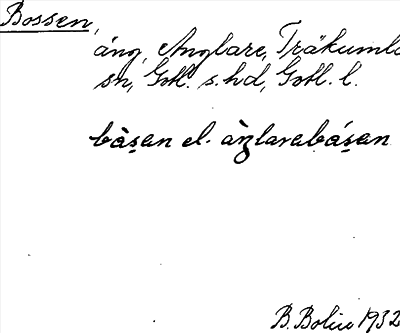 Bossen,
äng, Anglare, Träkumla
sn, Gotl. s. hd, Gotl. l.
bàsan el. àŋlarabásan
B. Bolin 1932